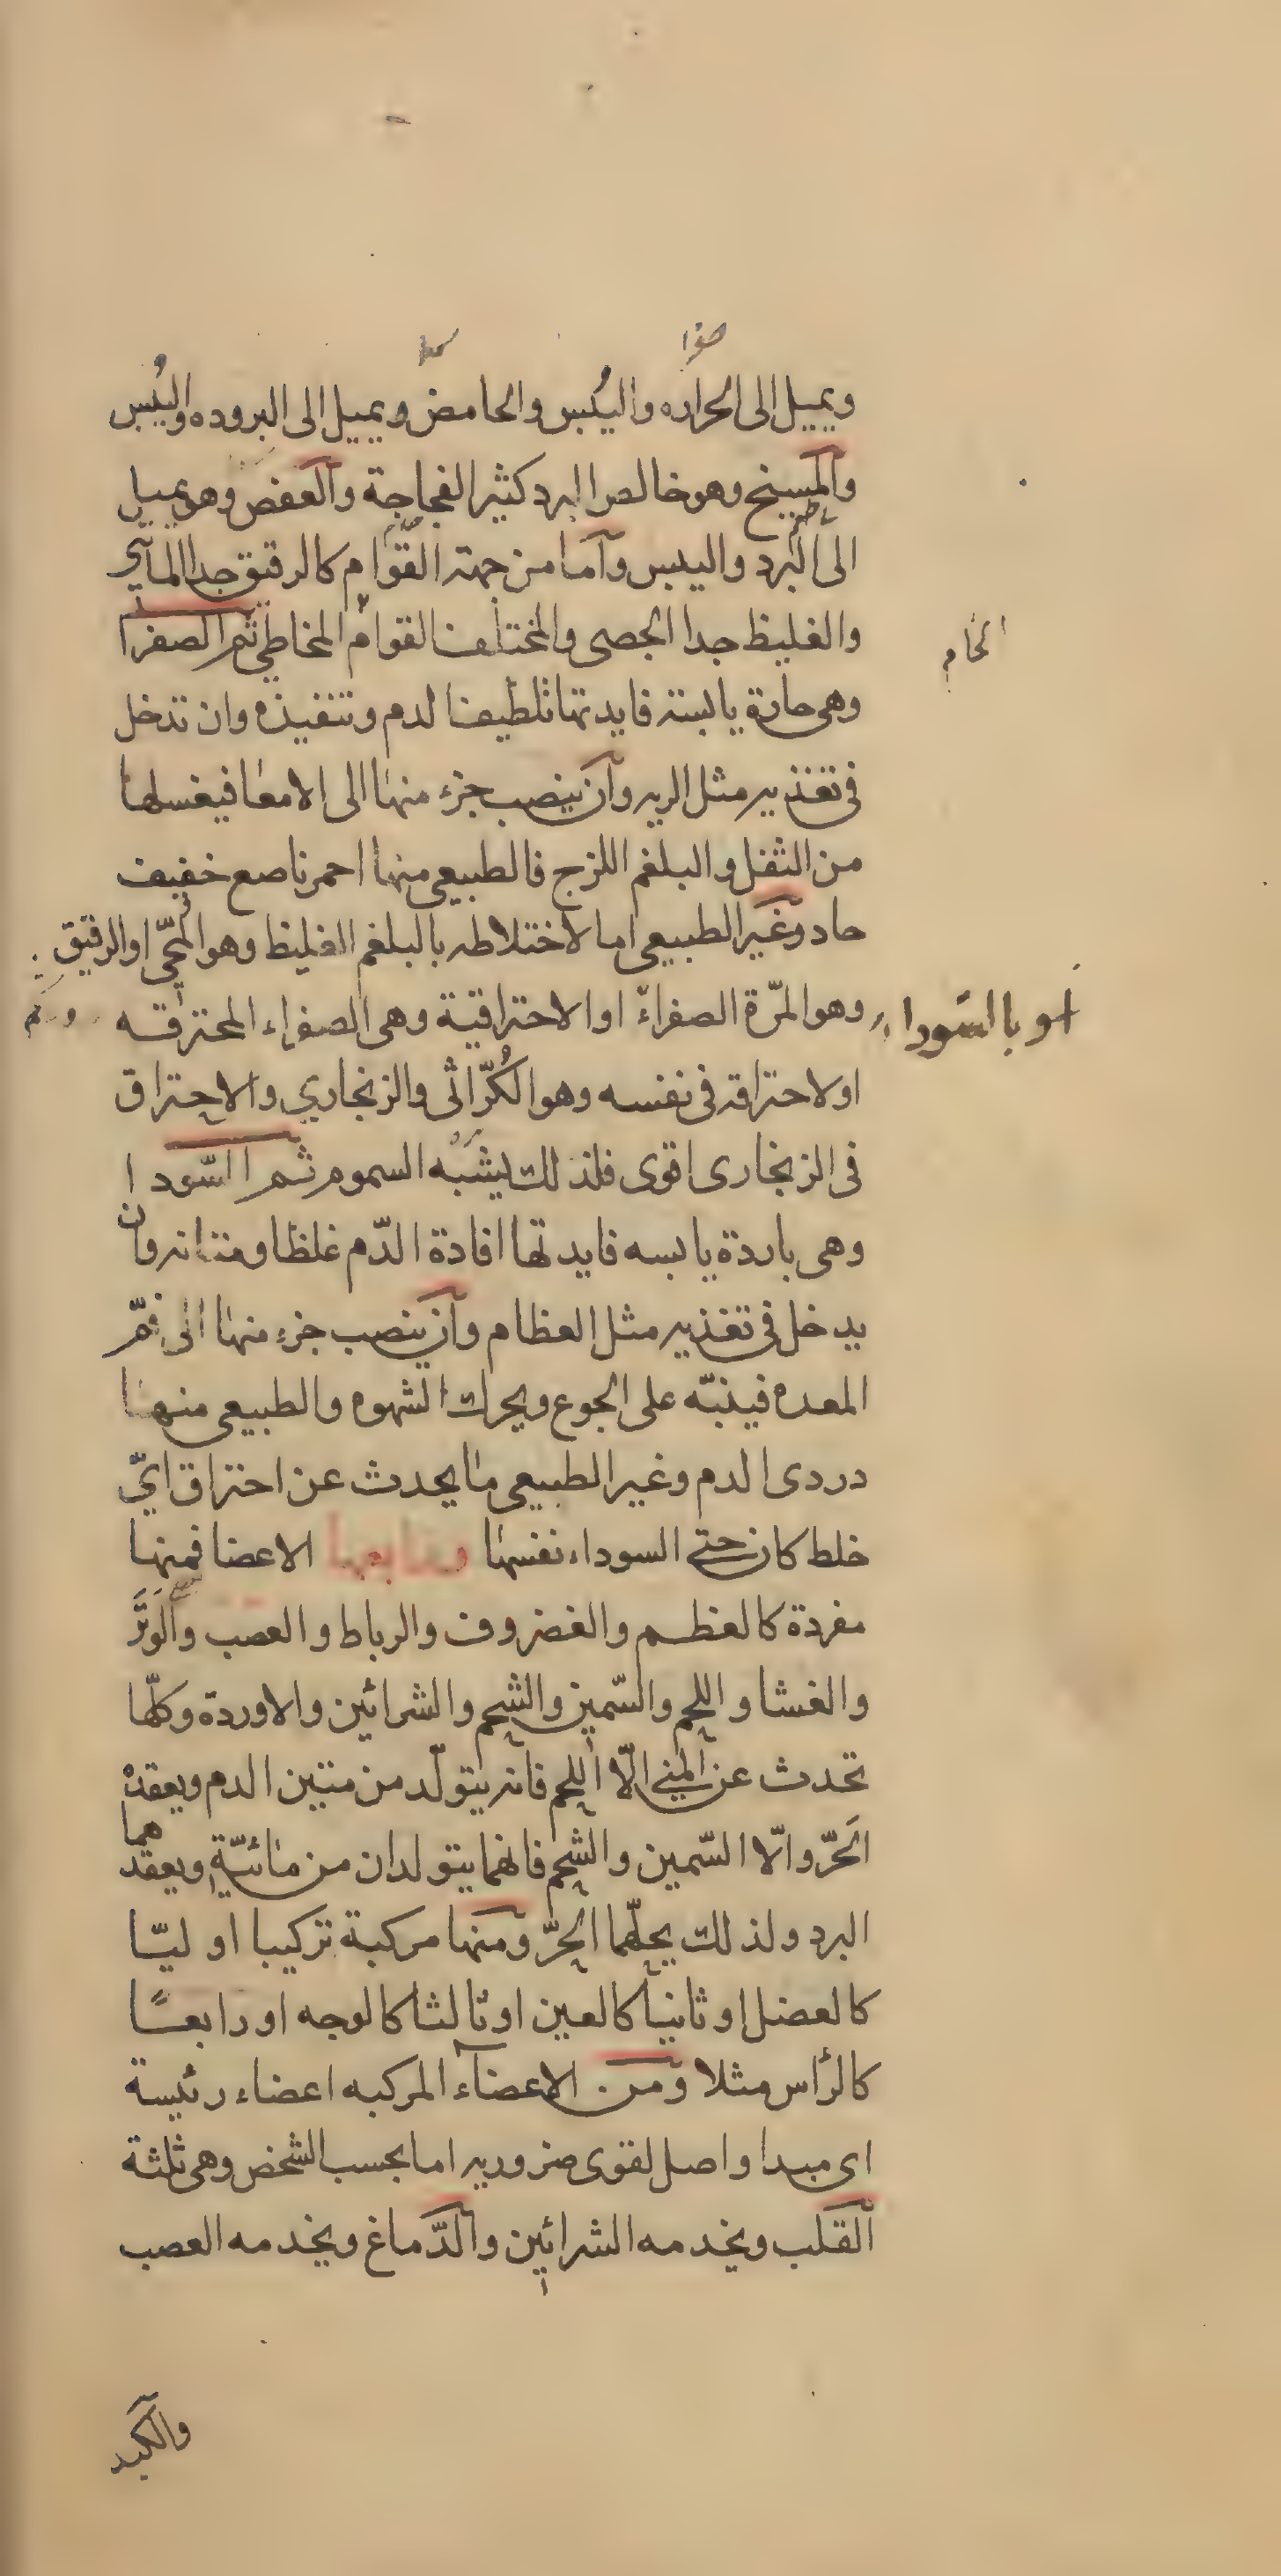 صفرا
ويميل الى الحراره واليُبس والحامض ويميل الى البروده واليُبس
والمسيخ وهو خالص البرد كثير الفجاجة والعفص وهو يميل
الى البرد واليبس وآما من جهة القوام كالرقيق جدا المآي
والغليظ جدا الجصى والمختلف القوام المخاطي ثم الصفرا
الخام
وهى حارة يابسة فايدتها تلطيف الدم وتنفيذه وان تدخل
فى تغذيه مثل الريه وآن ينصب جزء منها الى الامعا فيغسلها
من الثفل والبلغم اللزج فالطبيعي منها احمر ناصع خفيف
حاد وغير الطبيعي اما لاختلاطه بالبلغم الغليظ وهو المحّي او الرقيق
وهو المرّة الصفراء او الاحتراقية وهى الصفراء المحترقه
او بالسّوداء
او لاحتراقه فى نفسه وهو الكُرّاثى والزنجاري والاحتراق
فى الزنجارى اقوى فلذلك يشبه السموم ثم السّودا
وهى باردة يابسه فايدتها افادة الدّم غلظا ومتانه وان
يدخل فى تغذيه مثل العظام وآن ينصب جزء منها الى فمّ
المعده فينبّه على الجوع ويحرك الشهوه والطبيعي منها
دردى الدم وغير الطبيعي ما يحدث عن احتراق ايّ
خلط كان حتى السوداء نفسها ورابعها الاعضا فمنها
مفردة كالعظم والغضروف والرباط والعصب والوَتَر
والغشا واللحم والسّمين والشحم والشرائين والاوردة وكلّها
تحدث عن المنى الّا اللحم فانه يتولّد من متين الدم ويعقده
الَحرّ والّا السّمين والشحم فانهما يتولدان من مائيّةٍ ويعقدهما
البرد ولذلك يحلّهما الحرّ ومنها مركبة تركيبا اوليّا
كالعضل او ثانيا كالعين او ثالثا كالوجه او رابعًا
كالرأس مثلا ومن الاعضآء المركبه اعضاء رئيسة
اى مبدا واصل لقوى ضروريه اما بحسب الشخص وهى ثلثة
القلب ويخدمه الشرائين والدّماغ ويخدمه العصب
والكبد